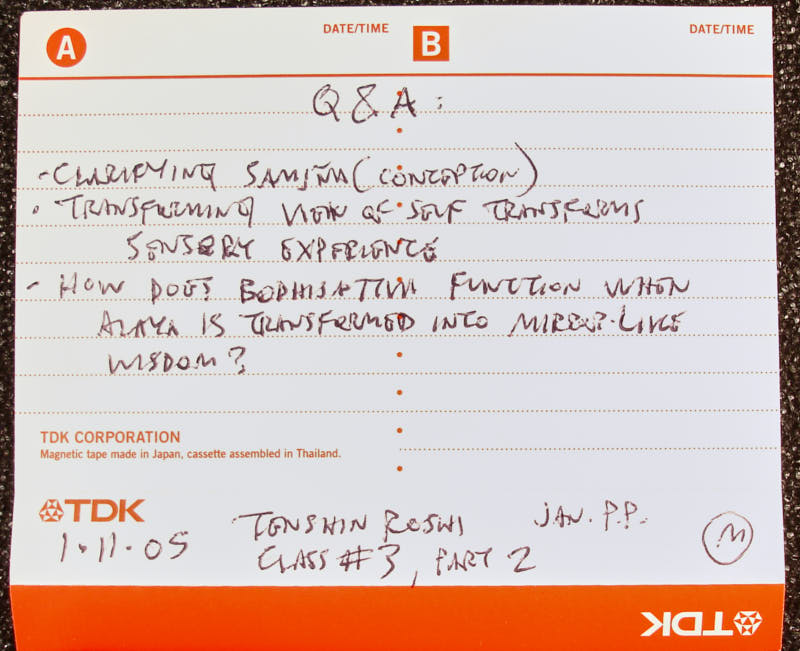 A DATE/TIME B DATE/TIME
Q & A:
- CLARIFYING SAMJÑA (CONCEPTION)
• TRANSFORMING VIEW OF SELF TRANSFORMS
SENSORY EXPERIENCE
- HOW DOES BODHISATTVA FUNCTION WHEN
ALAYA IS TRANSFORMED INTO MIRROR-LIKE
WISDOM?
TDK CORPORATION
Magnetic tape made in Japan, cassette assembled in Thailand.
TDK
TENSHIN ROSHI JAN. P.P.
1.11.05
CLASS #3, PART 2
M
TDK